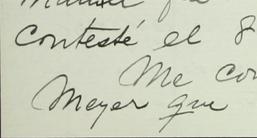 contesté el 8
Me co
Meyer que